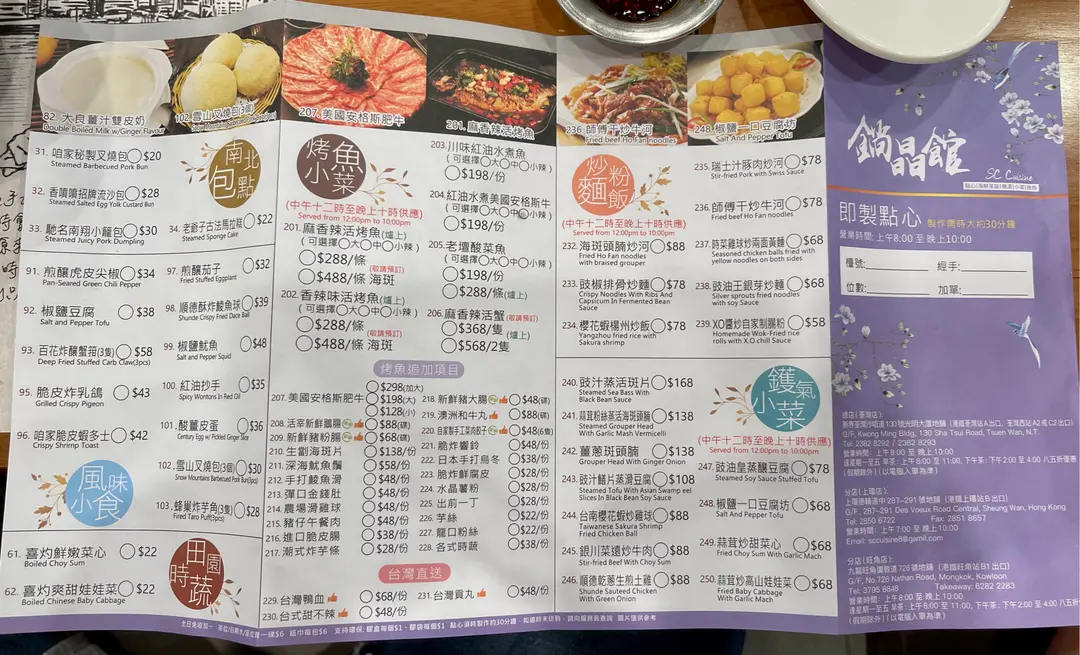 82. 大良薑汁雙皮奶
Double Boiled Milk w/Ginger Flavor
102. 雪山叉燒包(3個)
31. 咱家秘製叉燒包 $20
Steamed Barbecued Pork Bun
32. 香噴噴招牌流沙包 $28
Steamed Salted Egg Yolk Custard Bun
33. 馳名南翔小籠包 $30
Steamed Juicy Pork Dumpling
南北包點
34. 老爺子古法馬拉糕 $22
Steamed Sponge Cake
91. 煎釀虎皮尖椒 $34
Pan-Seared Green Chili Pepper
92. 椒鹽豆腐 $38
Salt and Pepper Tofu
93. 百花炸釀蟹箝(3隻) $58
Deep Fried Stuffed Carb Claw(3pcs)
95. 脆皮炸乳鴿 $43
Grilled Crispy Pigeon
96. 咱家脆皮蝦多士 $42
Crispy Shrimp Toast
風味小食
97. 煎釀茄子 $32
Fried Stuffed Eggplant
98. 順德酥炸鯪魚球 $39
Shunde Crispy Fried Dace Ball
99. 椒鹽魷魚 $48
Salt and Pepper Squid
100. 紅油抄手 $35
Spicy Wontons In Red Oil
101. 酸薑皮蛋 $36
Century Egg w/ Pickled Ginger Slice
102. 雪山叉燒包(3個) $30
Snow Mountains Barbecued Pork Bun(3pcs)
103. 蜂巢炸芋角(3隻) $28
Fired Taro Puff(3pcs)
61. 喜灼鮮嫩菜心 $22
Boiled Choy Sum
62. 喜灼爽甜娃娃菜 $22
Boiled Chinese Baby Cabbage
田園時蔬
207. 美國安格斯肥牛
201. 麻香辣活烤魚
烤魚小菜
(中午十二時至晚上十時供應)
Served from 12:00pm to 10:00pm
201. 麻香辣活烤魚(爐上)
(可選擇 大 中 小辣)
$288/條
(敬請預訂)
$488/條 海斑
202. 香辣味活烤魚(爐上)
(可選擇 大 中 小辣)
$288/條
(敬請預訂)
$488/條 海斑
203. 川味紅油水煮魚
(可選擇 大 中 小辣)
$198/份
204. 紅油水煮美國安格斯牛
(可選擇 大 中 小辣)
$198/份
205. 老壇酸菜魚
$198/份
$288/條(爐上)
206. 麻香辣活蟹(敬請預訂)
$368/隻
(爐上)
$568/2隻
烤魚追加項目
207. 美國安格斯肥牛 $298(加大)
$198(大)
$128(小)
208. 活宰新鮮鵝腸 $88(碟)
209. 新鮮豬粉腸 $68(碟)
210. 生劏海斑片 $138/份
211. 深海魷魚鬚 $58/份
212. 手打鯪魚滑 $48/份
213. 彈口金錢肚 $48/份
214. 農場滑雞球 $48/份
215. 豬仔午餐肉 $48/份
216. 進口脆皮腸 $38/份
217. 潮式炸芋條 $28/份
218. 新鮮豬大腸 $48(碟)
219. 澳洲和牛丸 $88(碟)
220. 自家製手工菜肉餃子 $48(6隻)
221. 脆炸響鈴 $48/份
222. 日本手打烏冬 $38/份
223. 脆炸鮮腐皮 $28/份
224. 水晶薯粉 $28/份
225. 出前一丁 $22/份
226. 芋絲 $22/份
227. 龍口粉絲 $22/份
228. 各式時蔬 $38/份
台灣直送
229. 台灣鴨血 $68/份
230. 台式甜不辣 $48/份
231. 台灣貢丸 $48/份
236. 師傅干炒牛河
Fried beef Ho Fan noodles
248. 椒鹽一口豆腐坊
Salt And Pepper Tofu
炒粉麵飯
(中午十二時至晚上十時供應)
Served from 12:00pm to 10:00pm
232. 海斑頭腩炒河 $88
Fried Ho Fan Noodles
with braised grouper
233. 豉椒排骨炒麵 $78
Crispy Noodles With Ribs And
Capsicum In Fermented Bean
Sauce
234. 櫻花蝦楊州炒飯 $78
Yangzhou fried rice with
Sakura shrimp
235. 瑞士汁豚肉炒河 $78
Stir-fried Pork with Swiss Sauce
236. 師傅干炒牛河 $78
Fried beef Ho Fan noodles
237. 時菜雞球炒兩面黃麵 $68
Seasoned chicken balls fried with
yellow noodles on both sides
238. 豉油王銀芽炒麵 $68
Silver sprouts fried noodles
with soy Sauce
239. XO醬炒自家制腸粉 $58
Homemade Wok-Fried rice
rolls with X.O.chill Sauce
240. 豉汁蒸活斑片 $168
Steamed Sea Bass With
Black Bean Sauce
241. 蒜茸粉絲蒸活海斑頭腩 $138
Steamed Grouper Head
With Garlic Mash Vermicelli
242. 薑蔥斑頭腩 $138
Grouper Head With Ginger Onion
243. 豉汁鱔片蒸滑豆腐 $108
Steamed Tofu With Asian Swamp eel
Slices In Black Bean Soy Sauce
244. 台南櫻花蝦炒雞球 $88
Taiwanese Sakura Shrimp
Fried Chicken Ball
245. 銀川菜遠炒牛肉 $88
Stir-fried Beef With Choy Sum
246. 順德乾蔥生煎土雞 $88
Shunde Sauteed Chicken
With Green Onion
鑊氣小菜
(中午十二時至晚上十時供應)
Served from 12:00pm to 10:00pm
247. 豉油皇蒸釀豆腐 $78
Steamed Soy Sauce Stuffed Tofu
248. 椒鹽一口豆腐坊 $68
Salt And Pepper Tofu
249. 蒜茸炒甜菜心 $68
Fried Choy Sum With Garlic Mach
250. 蒜茸炒高山娃娃菜 $68
Fried Baby Cabbage
With Garlic Mach
鍋晶館
SC Cuisine
即製點心 製作需時大約30分鐘
營業時間: 上午8:00 至 晚上10:00
檯號: 經手:
位數: 加單:
總店(荃灣店)
新界荃灣沙咀道130號光明大廈地舖 (港鐵荃灣站A出口, 荃灣西站A2或C2出口)
G/F, Kwong Ming Bldg, 130 Sha Tsui Road, Tsuen Wan, N.T.
Tel: 2382 8292 / 2382 8293
營業時間: 上午 8:00 至 晚上 10:00
分店(上環店)
上環德輔道中 287-291 號地舖 (港鐵上環站 B 出口)
G/F., 287-291 Des Voeux Road Central, Sheung Wan, Hong Kong
Tel: 2850 6722 Fax: 2851 8657
營業時間: 上午 7:00 至 晚上 10:00
Email: sccuisine8@gamil.com
分店(旺角店)
九龍旺角彌敦道 726 號地舖 (港鐵旺角站 B1 出口)
G/F, No,726 Nathan Road, Mongkok, Kowloon
Tel: 3795 8845 Takeaway: 6282 2283
營業時間: 上午 8:00 至 晚上 10:00